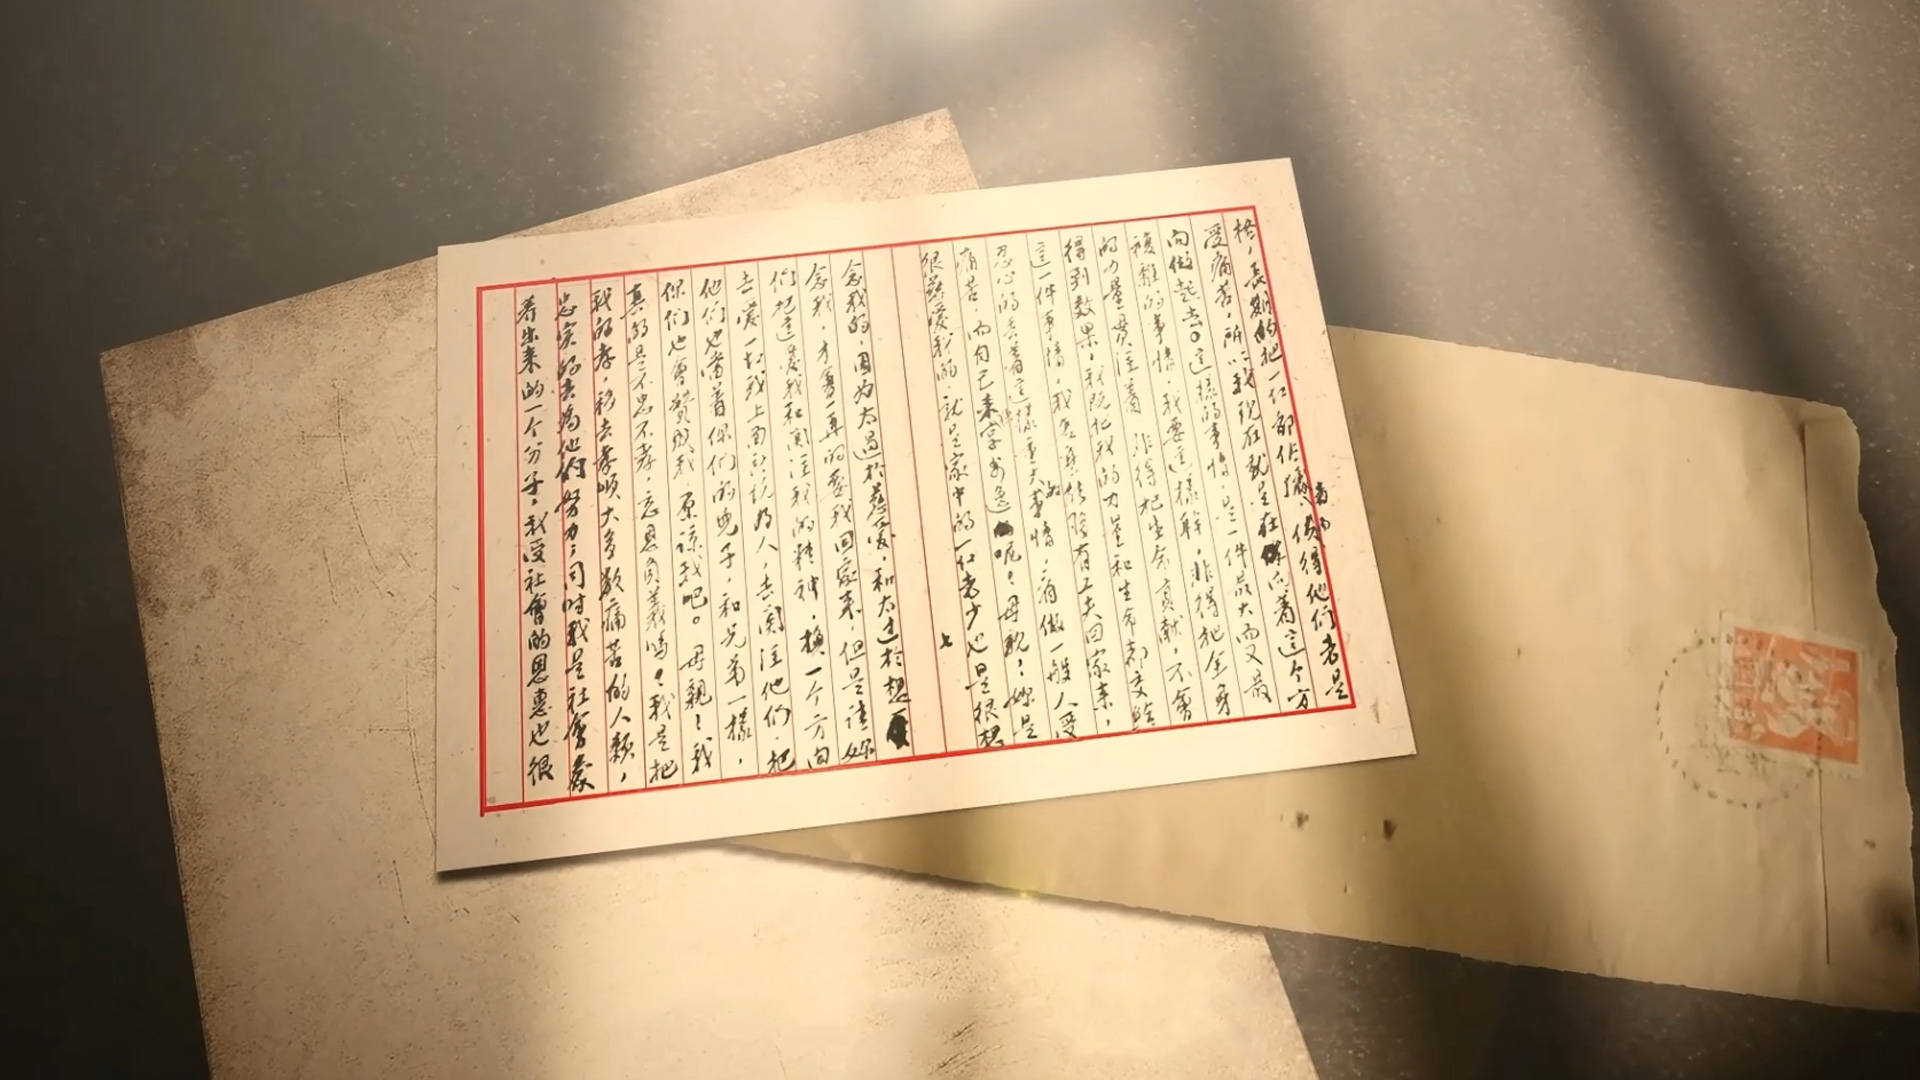 核，長期的把一切都佔據着，使得他們老是
受痛苦，所以我现在就是在向着这个方
向做起去。這樣的事情，是一件最大而又最
複雜的事情，我要這樣幹，非得把全身
的力量贯注着，非得把生命贡献，不會
得到效果，我既把我的力量和生命都交給
這一件事情，我怎還能有工夫回家来，
忍心的丟着這樣重大的事情，看做一般人受
痛苦，而自己来享安逸呢！母親！妳是
很慈爱我的，就是家中的一切老少也是很想
七
念我的，因为太過於慈爱，和太过於想
念我，才會一再的要我回家来，但是請妳
們把這爱我和関注我的精神，換一个方向
去爱一切我上面所説的人，去関注他們，把
他們也當着你們的兒子，和兄弟一様，
你們也會賛成我，原諒我吧。母親！我
真的是不忠不孝，忘恩負義嗎！我是把
我的孝，移去孝順大多數痛苦的人類，
忠実的去為他們努力，同时我是社會養
着出来的一个分子，我受社會的恩惠也很